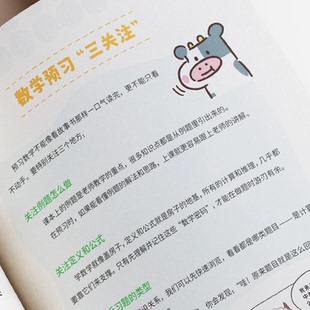 数学预习“三关注”
预习数学不能像看故事书那样一口气读完，更不能只看
不动手。要特别关注三个地方，
关注例题怎么做
课本上的例题是老师教学的重点，很多知识点都是从例题里引出来的。
在预习时，如果能看懂例题的解法和思路，上课就更容易跟上老师的讲解。
关注定义和公式
学数学就像盖房子，定义和公式就是房子的地基，所有的计算和推理，几乎都
要靠它们来支撑。只有先理解并记住这些“数学密码”，才能在做题时游刃有余。
习题的类型
识关系，我们可以先快速浏览，看看都是哪类题目——是计算
你会发现，“哇！原来题目就是这么回